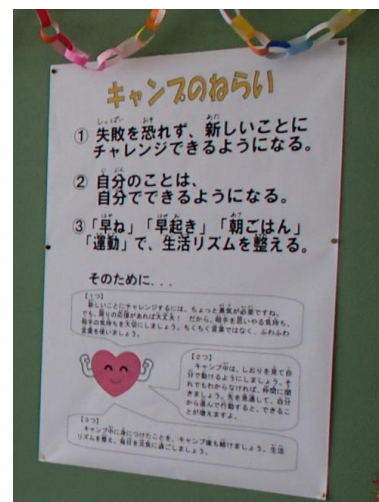 キャンプのねらい
① 失敗を恐れず、新しいことに
チャレンジできるようになる。
② 自分のことは、
自分でできるようになる。
③「早ね」「早起き」「朝ごはん」
「運動」で、生活リズムを整える。
そのために...
【1つ】
新しいことにチャレンジするには、ちょっと勇気が必要ですね。
でも、周りの応援があれば大丈夫! だから、相手を思いやる気持ち、
相手の気持ちを大切にしましょう。ちくちく言葉ではなく、ふわふわ
言葉を使いましょう。
【2つ】
キャンプ中は、しおりを見て自
分で動けるようにしましょう。そ
れでもわからなければ、仲間に聞
きましょう。先を見通して、自分
から進んで行動すると、できるこ
とが増えますよ。
【3つ】
キャンプ中に身につけたことを、キャンプ後も続けましょう。生活
リズムを整え、毎日を元気に過ごしましょう。